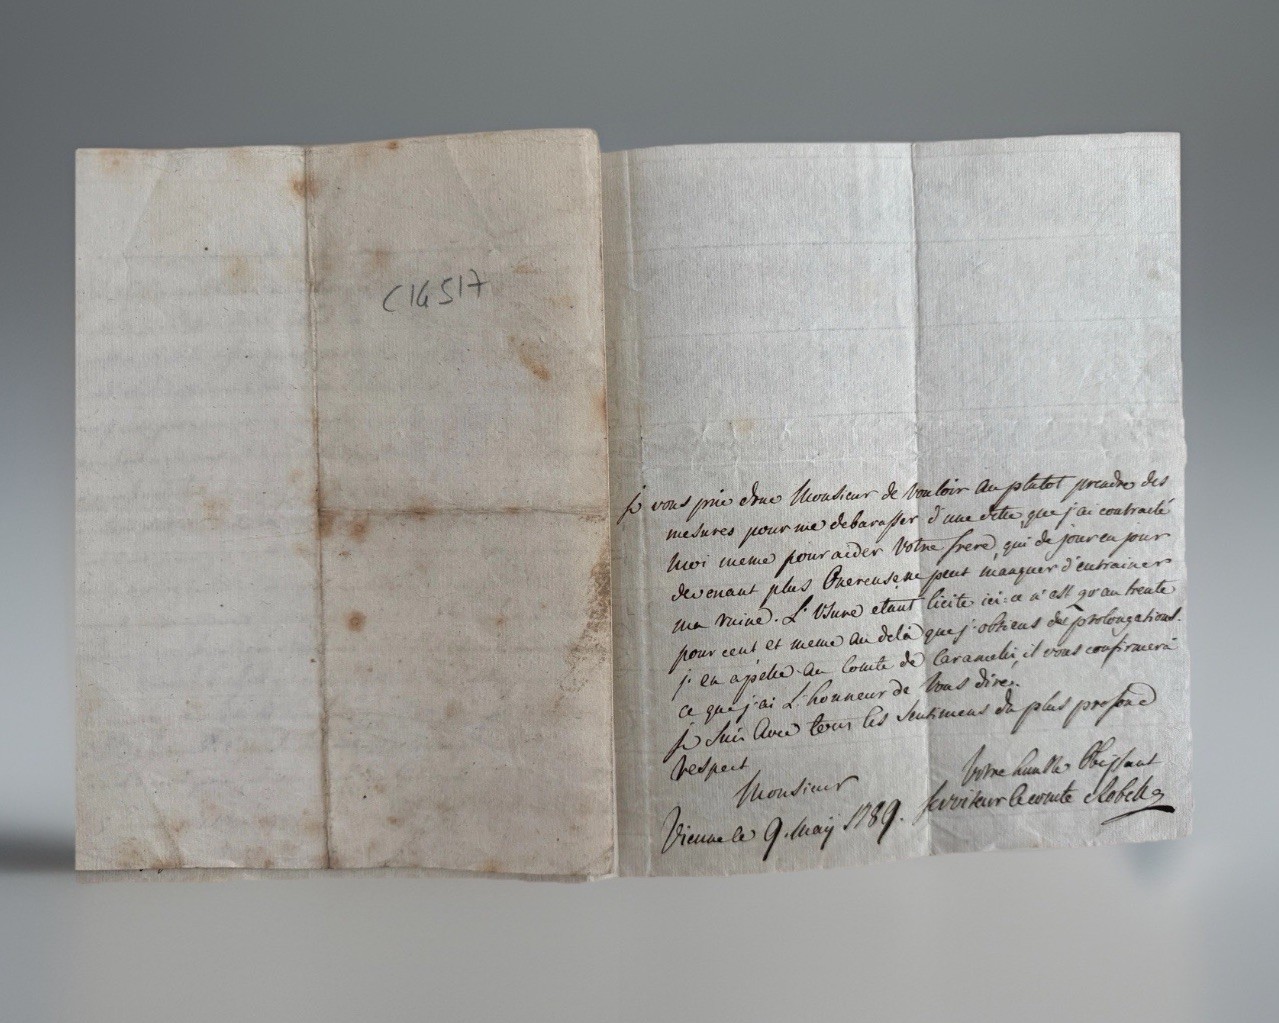 C16517
je vous prie donc Monsieur de vouloir au plutot prendre des
mesures pour me debarasser d'une dette que j'ai contracté
moi meme pour aider votre frere, qui de jour en jour
devenant plus Onereuse ne peut manquer d'entrainer
ma ruine. L'Usure etant licite ici: ce n'est qu'au trente
pour cent et meme au delà que j'obtiens des prolongations.
j'en apelle au Comte de Caramelli, il vous confirmera
ce que j'ai L'honneur de Vous dire.
je suis Avec tous les Sentimens du plus profond
respect
Monsieur
Votre humble Obeissant
serviteur le comte
Vienne le 9. Maij 1789.